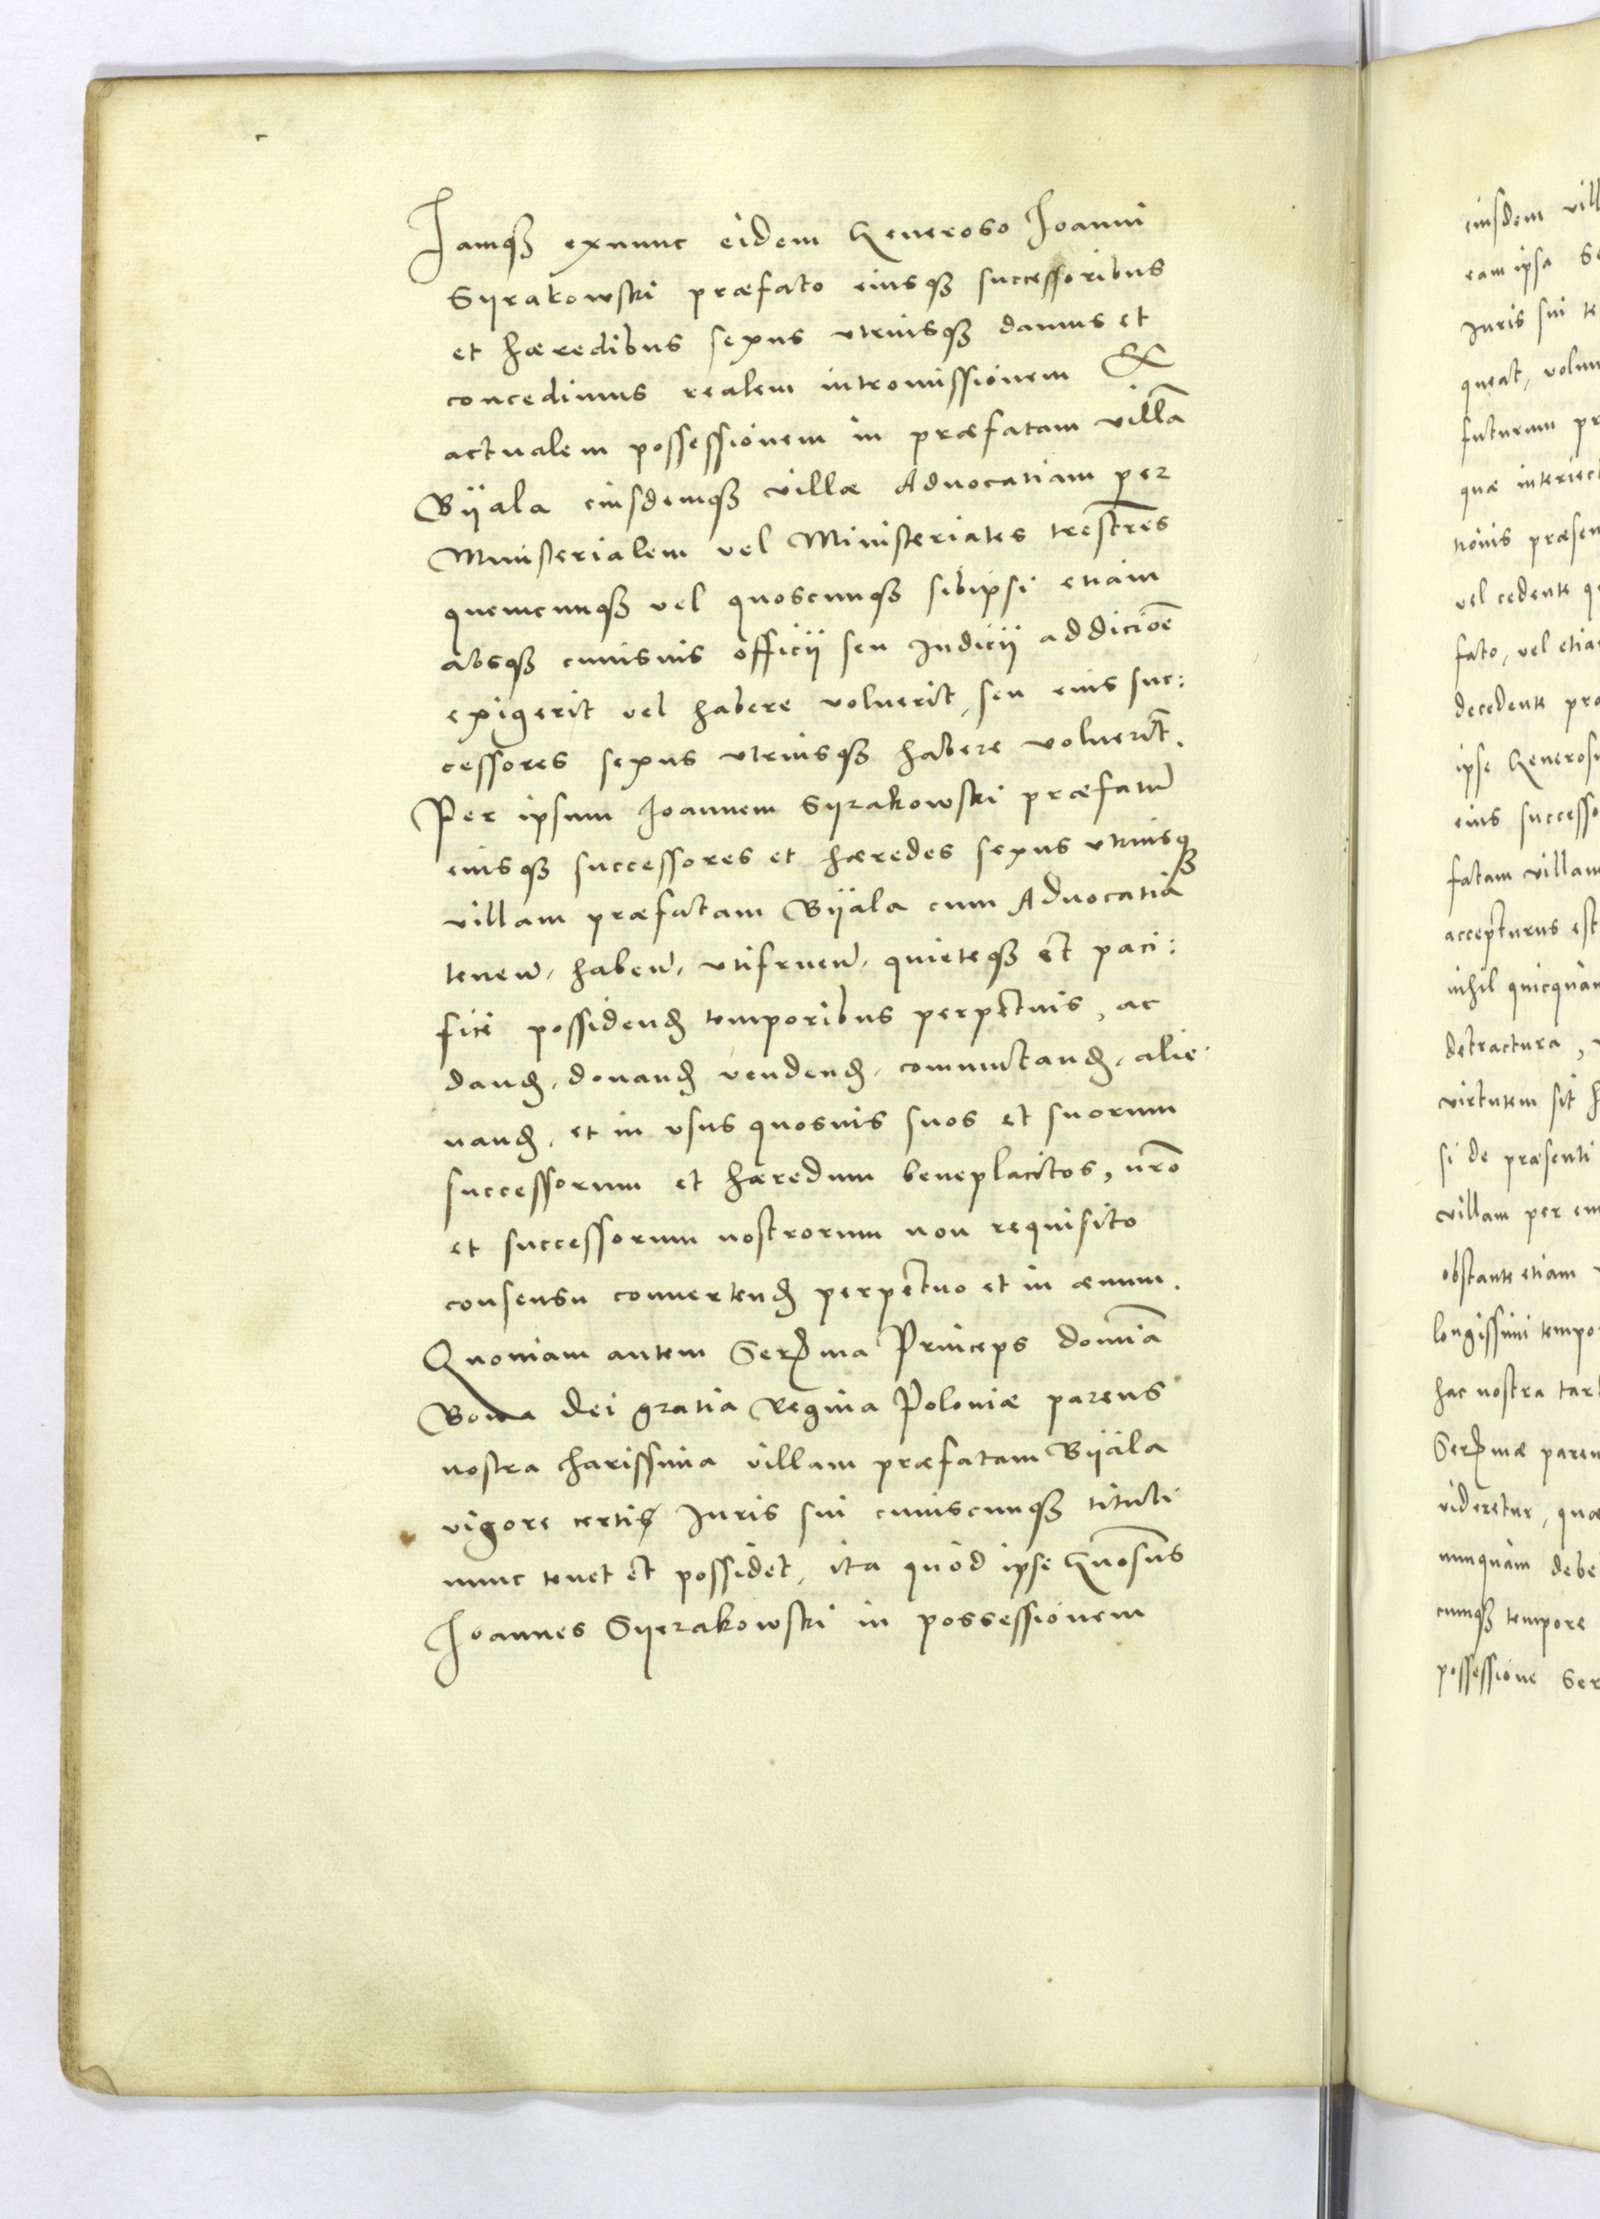 Iamq3 exnunc eidem Generoso Ioanni
Syrakowski præfato eiusq3 successoribus
et hæredibus sexus vtriusq3 damus et
concedimus realem intromissionem &
actualem possessionem in præfatam villā
Byala eiusdemq3 villæ Aduocatiam per
Ministerialem vel Ministeriales trestres
quemcunq3 vel quoscunq3 sibipsi etiam
absq3 cuiusuis officij seu Iudicij addicioē
exigerit vel habere voluerit, seu eius suc:
cessores sexus vtriusq3 habere voluerīt.
Per ipsum Ioannem Syrakowski præfatū
eiusq3 successores et hæredes sexus vtriusq3
villam præfatam Byala cum Aduocatia
tenen̄, haben̄, vtifruen̄, quieteq3 et paci:
fice possidend̄ temporibus perpetuis, ac
dand̄, donand̄ vendend̄, commutand̄, alie:
nand̄, et in vsus quosuis suos et suorum
successorum et hæredum beneplacitos, nr̄o
et successorum nostrorum non requisito
consensu conuertend̄ perpetuo et in æuum.
Quoniam autem Serma Princeps domīa
Bona dei gratia Regina Poloniæ parens
nostra charissima villam præfatam Byala
vigore certis Iuris sui cuiuscunq3 tituli
nunc tenet et possidet, ita quod ipse Gnosus
Ioannes Syerakowski in possessionem
eiusdem vill
eam ipsa Se
Iuris sui te
queat, volum
futurum pr
quæ interiec
tionis præsen
vel cedente q
fato, vel etia
decedente pra
ipse Generosu
eius successo
fatam villam
accepturus est
nihil quicquam
detractura,
virtutem sit h
si de præsenti
villam per em
obstante etiam
longissimi tempo
hac nostra tar
Sermæ paren
videretur, quæ
nunquam debe
cumq3 tempore
possessione Ser